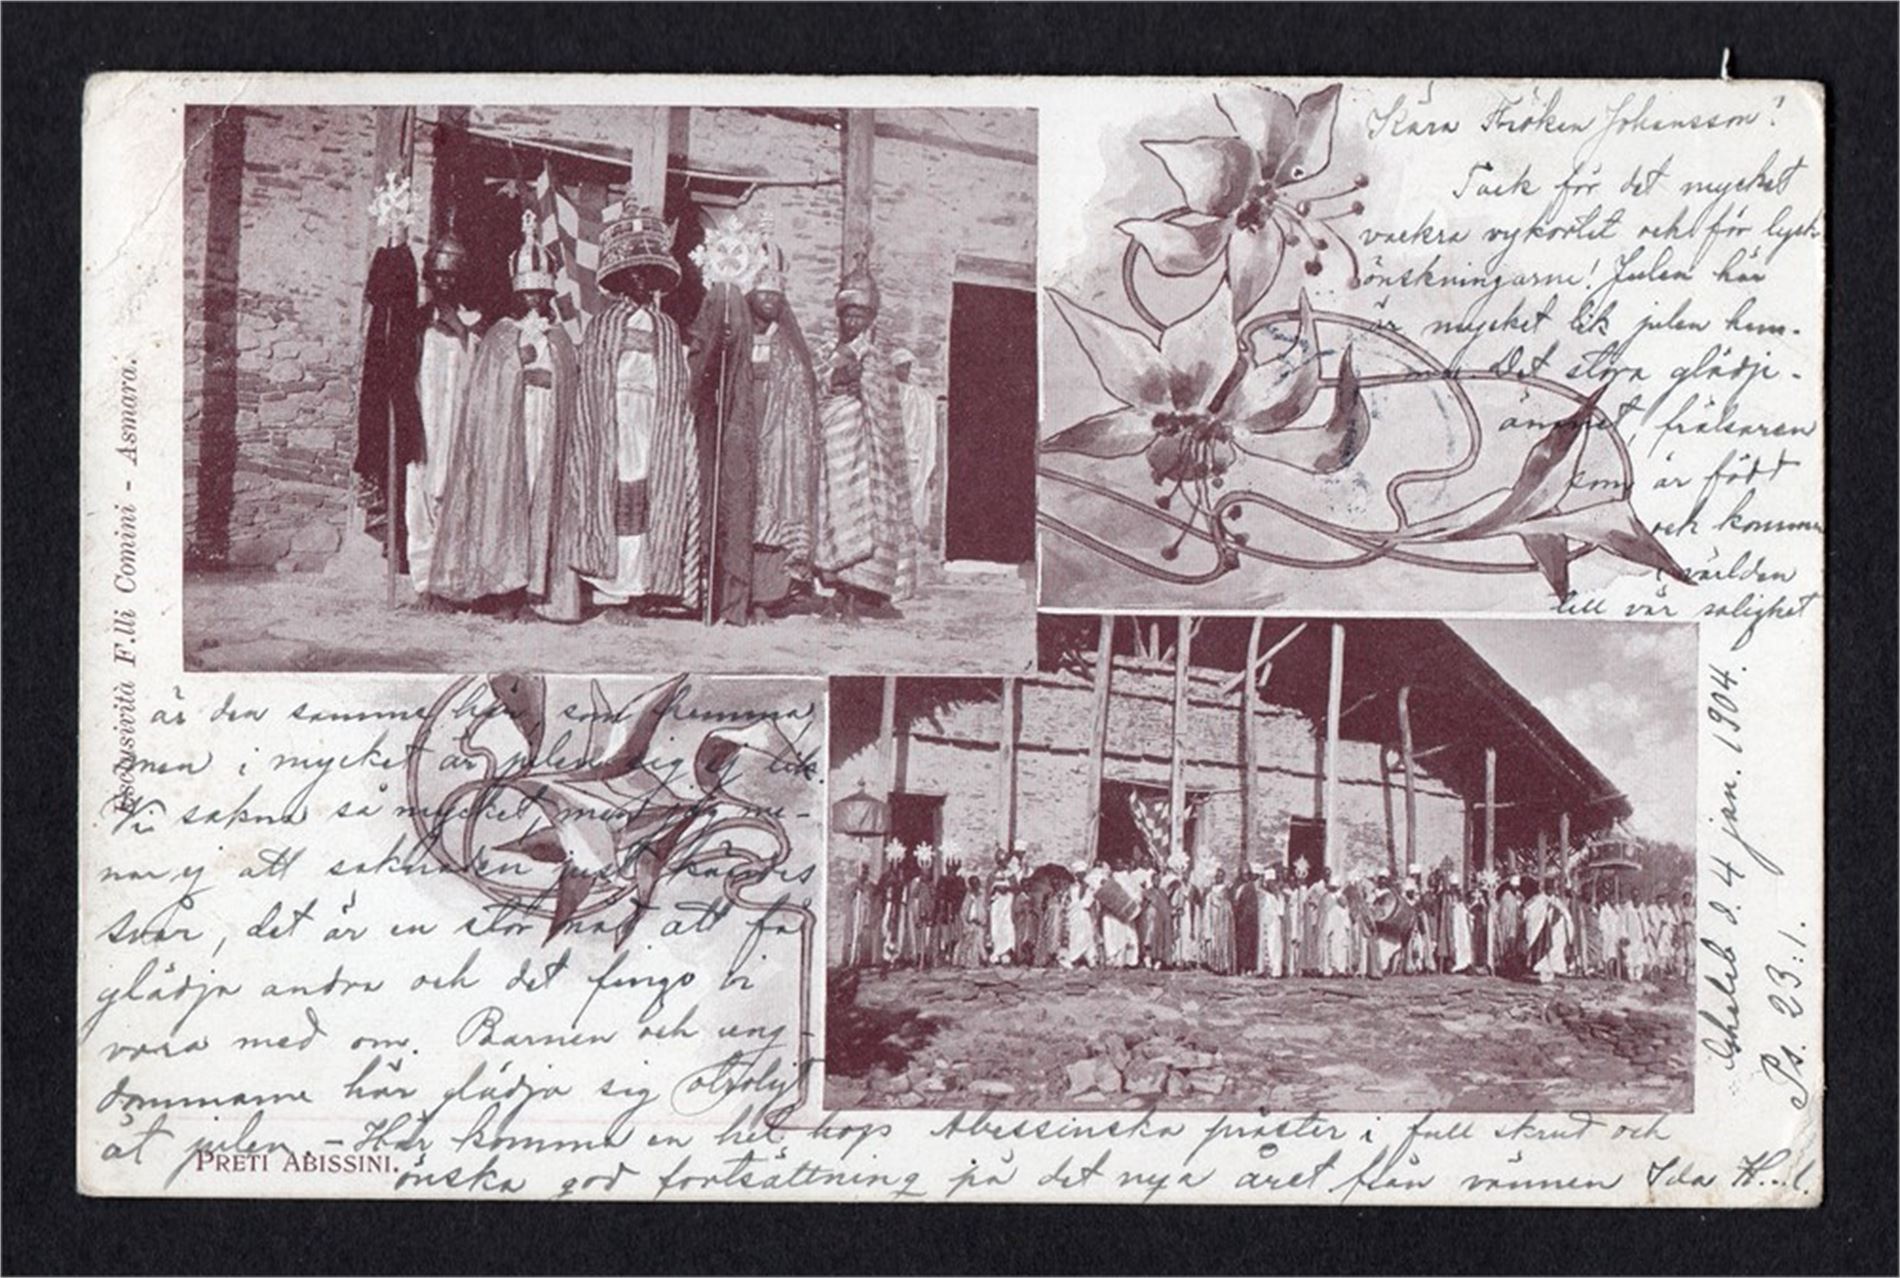 Kära Fröken Johansson!
Tack för det mycket
vackra vykortet och för lyck-
önskningarne! Julen här
är mycket lik julen hem-
ma. Det stora glädje-
ämnet, frälsaren
som är född
och kommen
i världen
till vår salighet
är den samme här, som hemma,
men i mycket är julen sig ej lik.
Vi sakna så mycket, men jag me-
nar ej att saknaden just kändes
svår, det är en stor nåd att få
glädja andra och det fingo vi
vara med om. Barnen och ung-
domarne här glädja sig otroligt
åt julen. – Här komma en hel hop Abessinska präster i full skrud och
önska god fortsättning på det nya året från vännen Ida H...l.
d. 4 jan. 1904.
Ps. 23:1.
Esclusività F.lli Comini - Asmara.
PRETI ABISSINI.